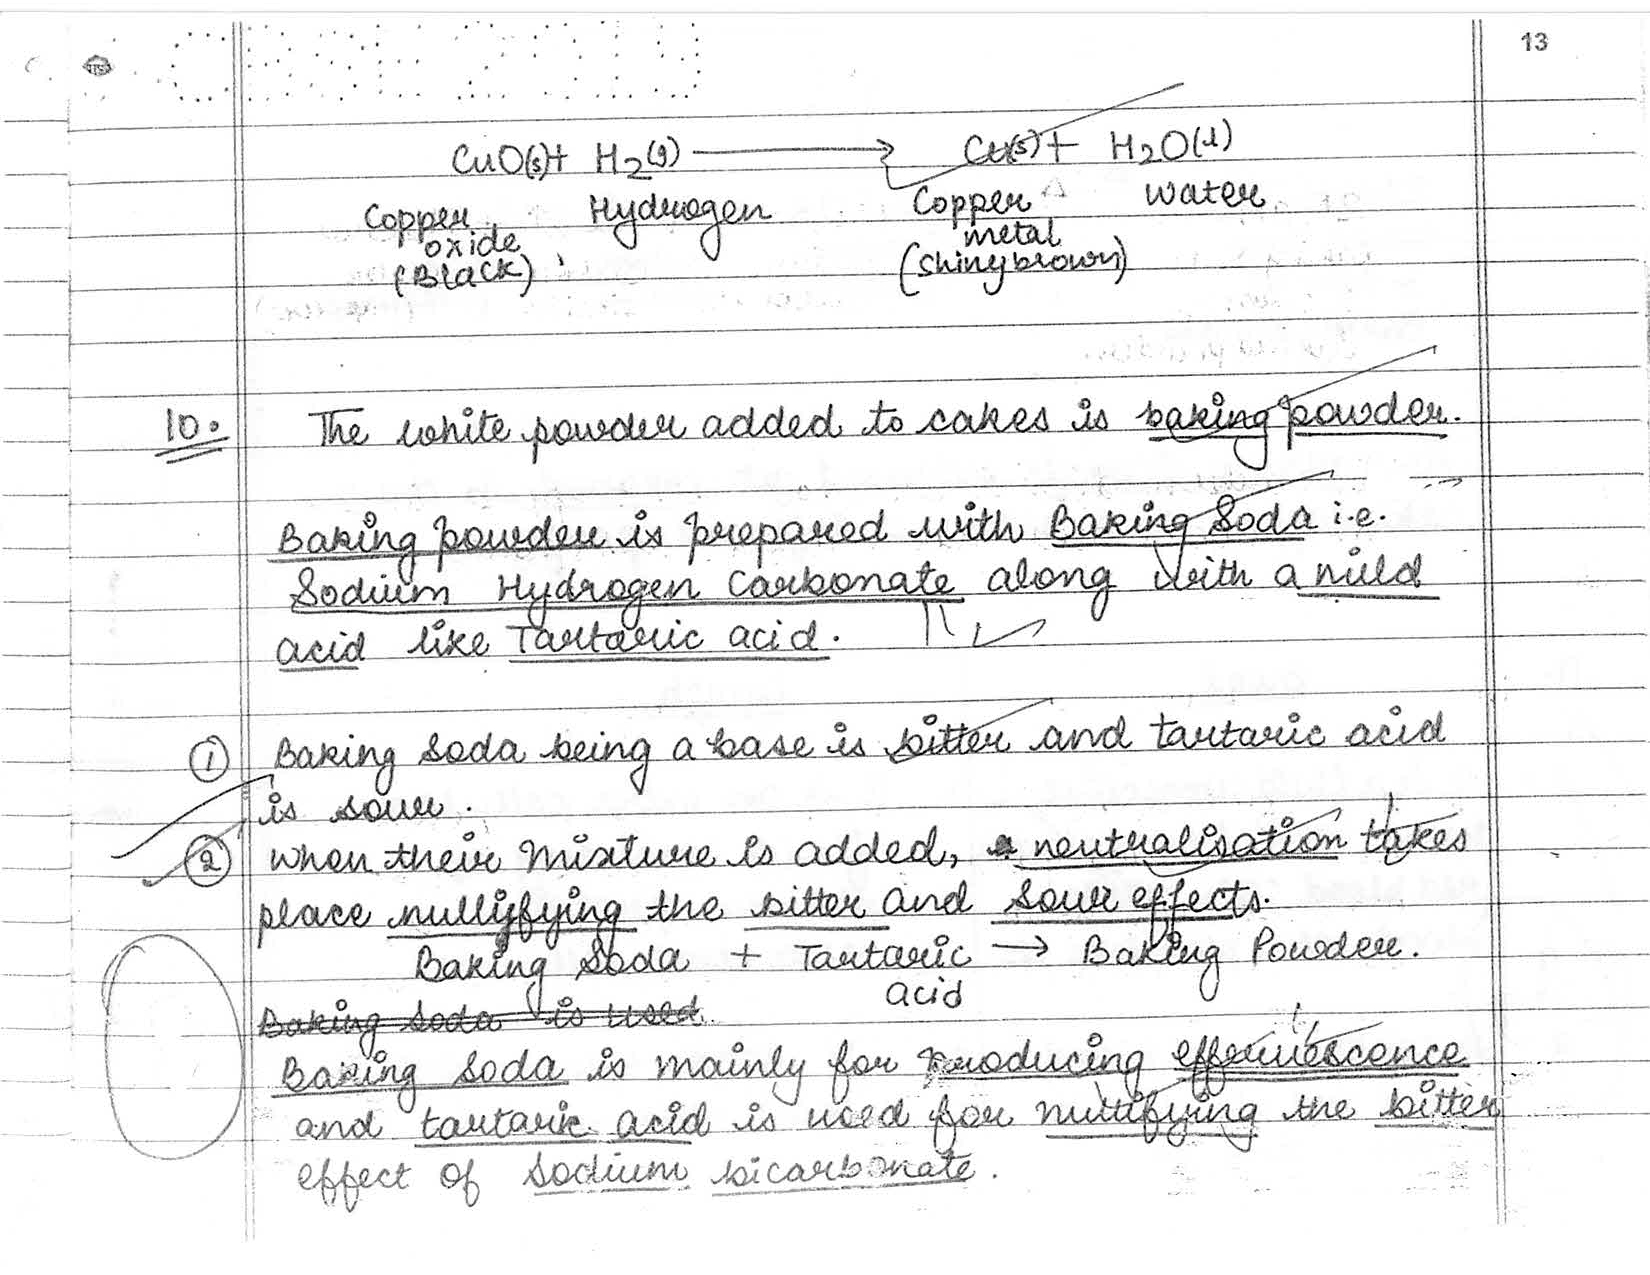 13
CuO(s)+ H2(g) ⟶ Cu(s)+ H2O(l)
Copper Hydrogen Copper Water
oxide metal
(Black) (Shiny brown)
10. The white powder added to cakes is baking powder.
Baking powder is prepared with Baking Soda i.e.
Sodium Hydrogen Carbonate along with a mild
acid like Tartaric acid.
① Baking soda being a base is bitter and tartaric acid
is sour.
② When their mixture is added, a neutralisation takes
place nullifying the bitter and sour effects.
Baking Soda + Tartaric → Baking Powder.
acid
Baking soda is used
Baking soda is mainly for producing effervescence
and tartaric acid is used for nullifying the bitter
effect of sodium bicarbonate.